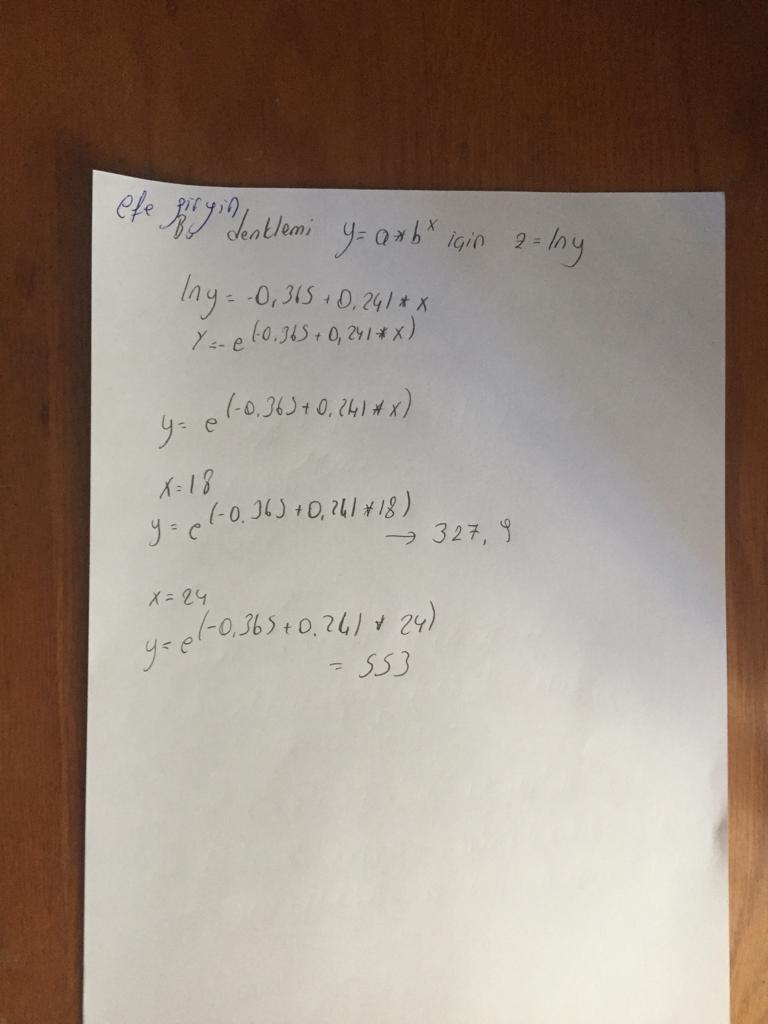 efe girgin
Bu denklemi y=a*b^x için z=lny
lny=-0,365+0,241*x
Y=-e^(-0.365+0,241*x)
y=e^(-0.365+0.241*x)
x=18
y=e^(-0.365+0,241*18) → 327,9
x=24
y=e^(-0,365+0.241*24)
= 553